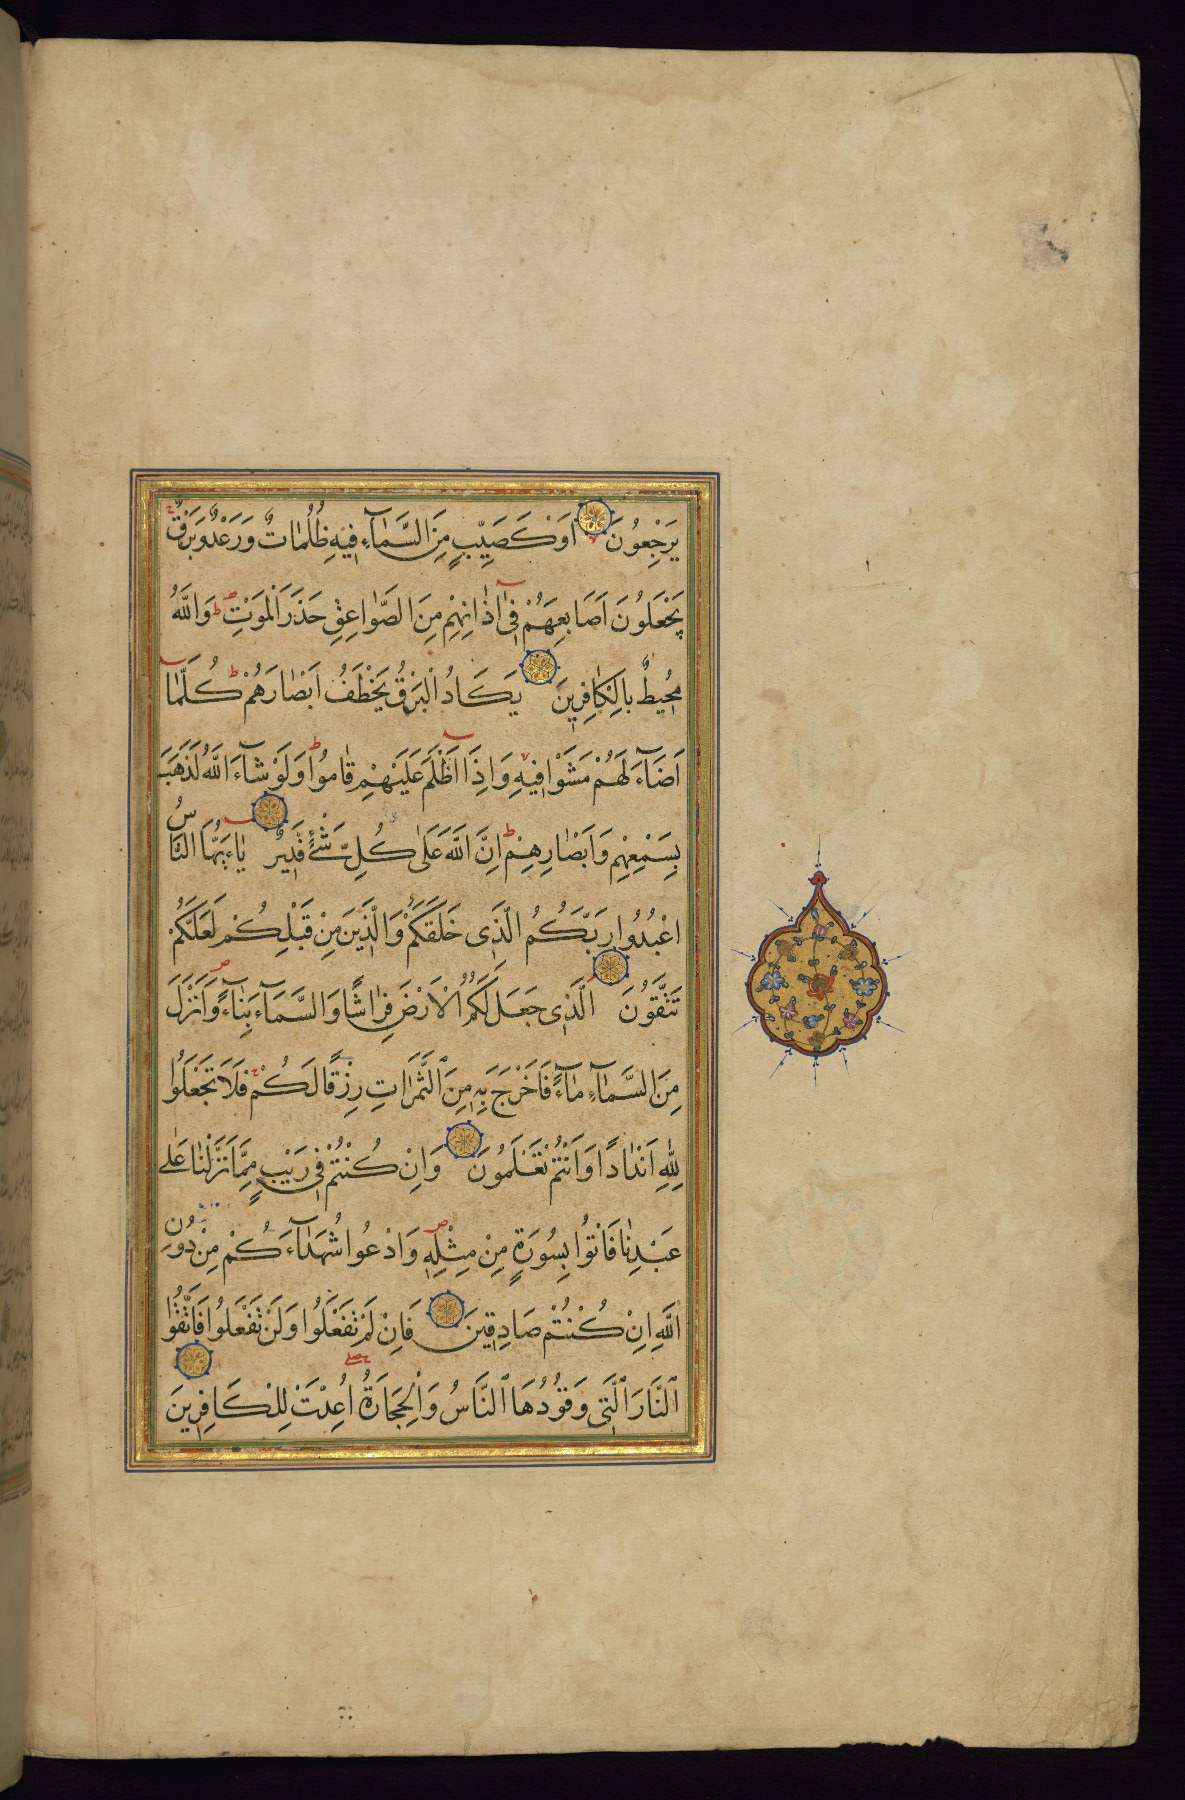 يَرْجِعُونَ اَوْ كَصَيِّبٍ مِنَ السَّمَاۤءِ فِيهِ ظُلُمَاتٌ وَرَعْدٌ وَبَرْقٌ
يَجْعَلُونَ اَصَابِعَهُمْ فِىۤ اٰذَانِهِمْ مِنَ الصَّوَاعِقِ حَذَرَ الْمَوْتِ وَاللّٰهُ
مُحِيطٌ بِالْكَافِرِينَ يَكَادُ الْبَرْقُ يَخْطَفُ اَبْصَارَهُمْ كُلَّمَاۤ
اَضَاۤءَ لَهُمْ مَشَوْا فِيهِ وَاِذَاۤ اَظْلَمَ عَلَيْهِمْ قَامُوا وَلَوْ شَاۤءَ اللّٰهُ لَذَهَبَ
بِسَمْعِهِمْ وَاَبْصَارِهِمْ اِنَّ اللّٰهَ عَلٰى كُلِّ شَىْءٍ قَدِيرٌ يَاۤ ءَيُّهَا النَّاسُ
اعْبُدُوا رَبَّكُمُ الَّذِى خَلَقَكُمْ وَالَّذِينَ مِنْ قَبْلِكُمْ لَعَلَّكُمْ
تَتَّقُونَ الَّذِى جَعَلَ لَكُمُ الْاَرْضَ فِرَاشًا وَالسَّمَاۤءَ بِنَاۤءً وَاَنْزَلَ
مِنَ السَّمَاۤءِ مَاۤءً فَاَخْرَجَ بِهِ مِنَ الثَّمَرَاتِ رِزْقًا لَكُمْ فَلَا تَجْعَلُوا
لِلّٰهِ اَنْدَادًا وَاَنْتُمْ تَعْلَمُونَ وَاِنْ كُنْتُمْ فِى رَيْبٍ مِمَّا نَزَّلْنَا عَلٰى
عَبْدِنَا فَاْتُوا بِسُورَةٍ مِنْ مِثْلِهِ وَادْعُوا شُهَدَاۤءَكُمْ مِنْ دُونِ
اللّٰهِ اِنْ كُنْتُمْ صَادِقِينَ فَاِنْ لَمْ تَفْعَلُوا وَلَنْ تَفْعَلُوا فَاتَّقُوا
النَّارَ الَّتِى وَقُودُهَا النَّاسُ وَالْحِجَارَةُ اُعِدَّتْ لِلْكَافِرِينَ